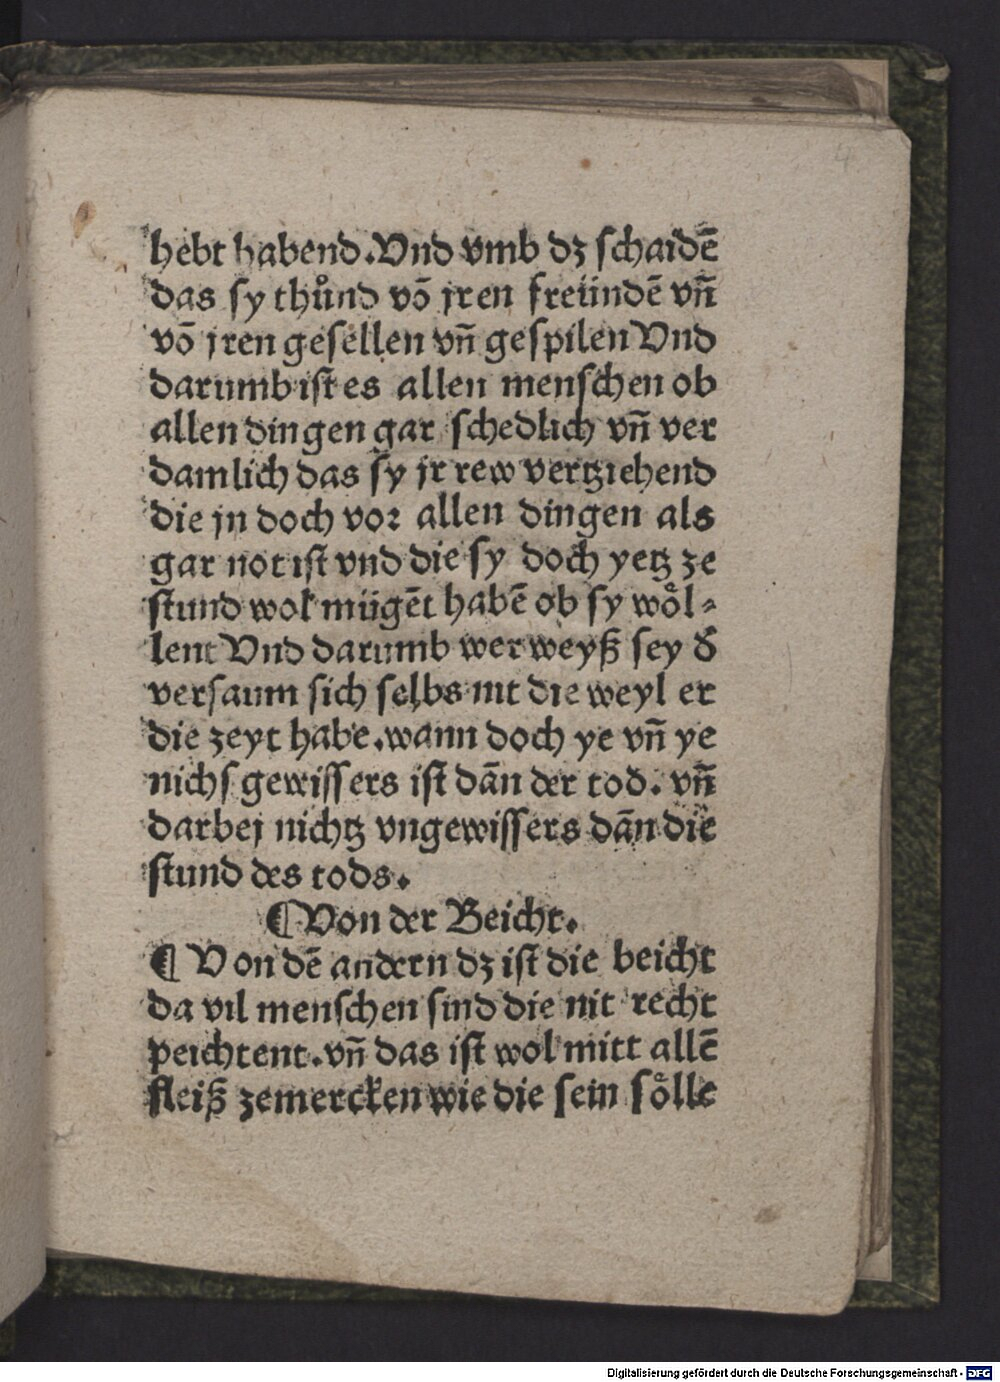 4
hebt habend. Vnd vmb dz schaidẽ
das sy thůnd võ jren freündẽ vñ
võ jren gesellen vñ gespilen Vnd
darumb ist es allen menschen ob
allen dingen gar schedlich vñ ver
damlich das sy jr rew vertziehend
die jn doch vor allen dingen als
gar not ist vnd die sy doch yetz ze
stund wol mügẽt habẽ ob sy woͤl⸗
lent Vnd darumb wer weyß sey đ
versaum sich selbs nit die weyl er
die zeyt habe. wann doch ye vñ ye
nichs gewissers ist dãn der tod. vñ
darbej nichtz vngewissers dãn die
stund des tods.
¶ Von der Beicht.
¶ Von dẽ andern dz ist die beicht
da vil menschen sind die nit recht
peichtent. vñ das ist wol mitt allẽ
fleiß zemercken wie die sein soͤlle
Digitalisierung gefördert durch die Deutsche Forschungsgemeinschaft - DFG